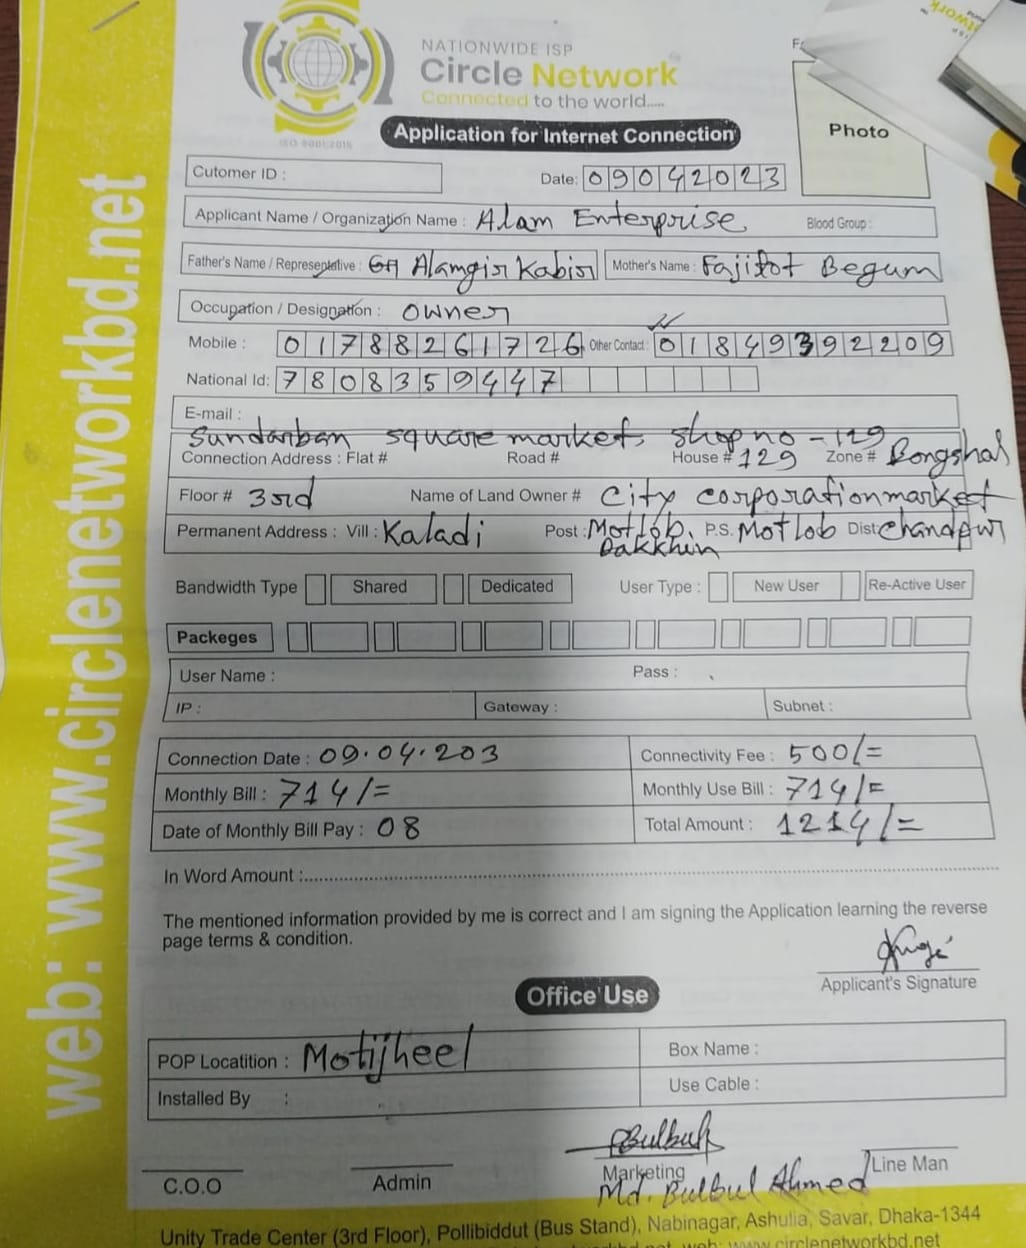 NATIONWIDE ISP
Circle Network
Connected to the world.....
ISO 9001:2015
Application for Internet Connection
Photo
web: www.circlenetworkbd.net
Cutomer ID :
Date: 09042023
Applicant Name / Organization Name : Alam Enterprise Blood Group :
Father's Name / Representative : Alamgir Kabir Mother's Name : Fajitot Begum
Occupation / Designation : owner
Mobile : 01788261726 Other Contact : 01849392209
National Id: 7808359447
E-mail :
Sundarban square market, shop no - 129
Connection Address : Flat # Road # House # 129 Zone # Bongshal
Floor # 3rd Name of Land Owner # City corporation market
Permanent Address : Vill : Kaladi Post : Motlob Dakkhin P.S. Motlob Dist: Chandpur
Bandwidth Type Shared Dedicated User Type : New User Re-Active User
Packeges
User Name : Pass :
IP : Gateway : Subnet :
Connection Date : 09.04.203 Connectivity Fee : 500/=
Monthly Bill : 714/= Monthly Use Bill : 714/=
Date of Monthly Bill Pay : 08 Total Amount : 1214/=
In Word Amount :
The mentioned information provided by me is correct and I am signing the Application learning the reverse
page terms & condition.
Applicant's Signature
Office Use
POP Locatition : Motijheel Box Name :
Installed By : Use Cable :
Bulbul
C.O.O Admin Marketing Line Man
Md. Bulbul Ahmed
Unity Trade Center (3rd Floor), Pollibiddut (Bus Stand), Nabinagar, Ashulia, Savar, Dhaka-1344
web: www.circlenetworkbd.net